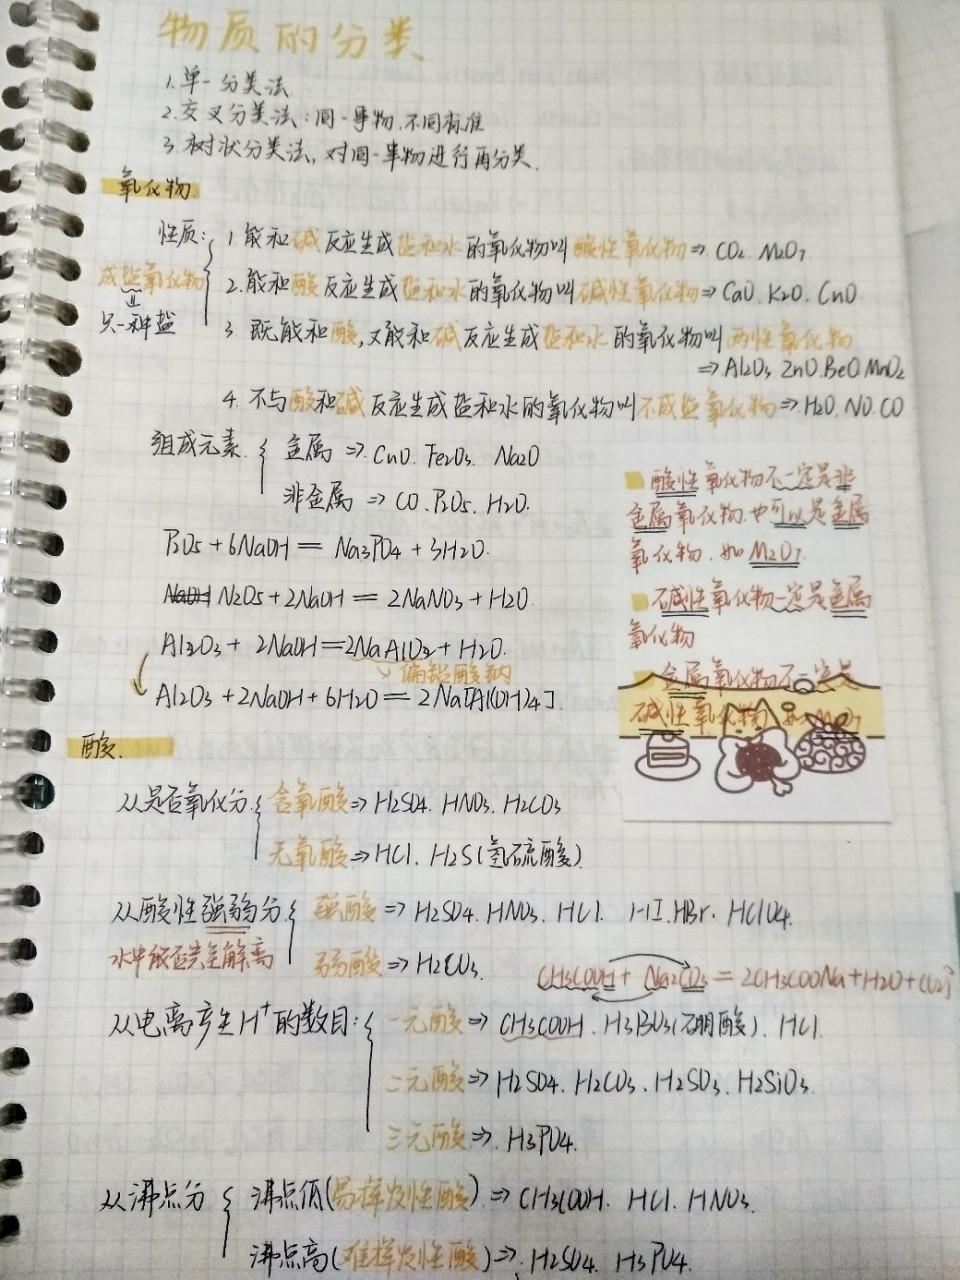 物质的分类
1.单一分类法
2.交叉分类法:同一事物,不同标准
3.树状分类法,对同一事物进行再分类.
氧化物.
性质:
1.能和碱反应生成盐和水的氧化物叫酸性氧化物⇒CO2.M2O7
成盐氧化物
2.能和酸反应生成盐和水的氧化物叫碱性氧化物⇒CaO.K2O.CuO
只一种盐
3.既能和酸,又能和碱反应生成盐和水的氧化物叫两性氧化物
⇒Al2O3 ZnO.BeO.MnO2
4.不与酸和碱反应生成盐和水的氧化物叫不成盐氧化物⇒H2O.NO.CO
组成元素.
金属⇒CuO.Fe2O3.Na2O
非金属⇒CO.P2O5.H2O.
P2O5+6NaOH=Na3PO4+3H2O.
N2O5+2NaOH=2NaNO3+H2O
Al2O3+2NaOH=2NaAlO2+H2O.
偏铝酸钠
Al2O3+2NaOH+6H2O=2Na[Al(OH)4].
酸性氧化物不一定是非
金属氧化物.也可以是金属
氧化物.如M2O7
碱性氧化物一定是金属
氧化物
金属氧化物不一定是
碱性氧化物
酸.
从是否氧化分
含氧酸⇒H2SO4.HNO3.H2CO3
无氧酸⇒HCl.H2S(氢硫酸)
从酸性强弱分
强酸⇒H2SO4.HNO3.HCl.HI.HBr.HClO4.
水中能否完全解离
弱酸⇒H2CO3.
CH3COOH+Na2CO3=2CH3COONa+H2O+CO2↑
从电离产生H+的数目:
一元酸⇒CH3COOH.H3BO3(硼酸).HCl.
二元酸⇒H2SO4.H2CO3.H2SO3.H2SiO3.
三元酸⇒H3PO4.
从沸点分
沸点低(易挥发性酸)⇒CH3COOH.HCl.HNO3.
沸点高(难挥发性酸)⇒H2SO4.H3PO4.